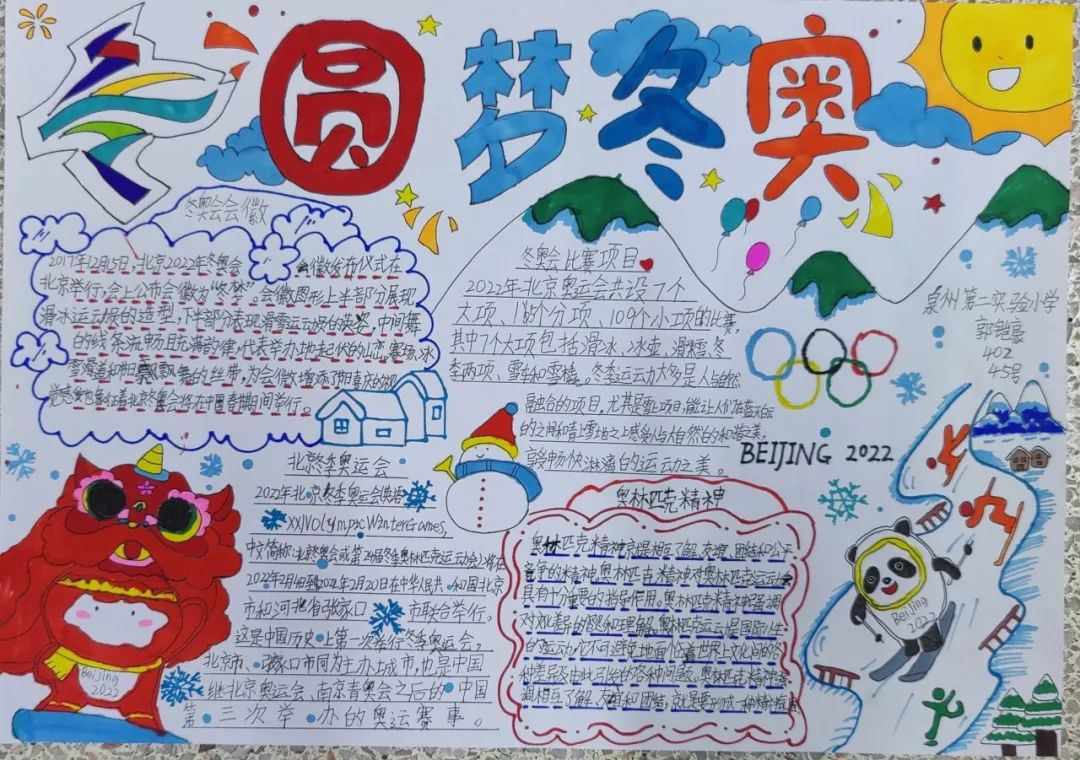 圆梦冬奥
冬奥会会徽
2017年12月15日,北京2022年冬奥会会徽发布仪式在
北京举行,会上公布会徽为"冬梦"。会徽图形上半部分展现
滑冰运动员的造型,下半部分表现滑雪运动员的英姿,中间舞
的线条流畅且充满韵律,代表举办地起伏的山峦、赛场、冰
雪滑道和节日飘舞的丝带,为会徽增添了节日喜庆的视
觉感受也象征着北京冬奥会将在中国春节期间举行。
冬奥会比赛项目
2022年北京奥运会共设7个
大项、15个分项、109个小项的比赛,
其中7个大项包括滑冰、冰壶、滑雪、冬
季两项、雪车和雪橇。冬季运动大多是人与自然
融合的项目,尤其是雪上项目,能让人们在蓝天白云
的之间和青山雪地之上感受人与大自然的和谐之美,
享受畅快淋漓的运动之美。
泉州第二实验小学
402
45号
BEIJING 2022
北京冬季奥运会
2022年北京冬季奥运会
XXIVOlympic WinterGames,
中文简称:北京冬奥会或第24届冬季奥林匹克运动会)将在
2022年2月4日到2022年2月20日在中华人民共和国北京
市和河北省张家口市联合举行。
这是中国历史上第一次举行冬季奥运会,
北京市、张家口市同为主办城市,也是中国
继北京奥运会、南京青奥会之后的中国
第三次举办的奥运赛事。
奥林匹克精神
奥林匹克精神就是相互了解、友谊、团结和公平
竞争的精神,奥林匹克精神对奥林匹克运动会
具有十分重要的指导作用。奥林匹克精神强调
对文化差异的容忍和理解。奥林匹克运动是国际性
的运动,它不可避免地面临着世界上文化间的各
种差异及由此引起的各种问题。奥林匹克精神强
调相互了解、友谊和团结,就是要形成一种精神
Beijing
2022
Beijing
2022